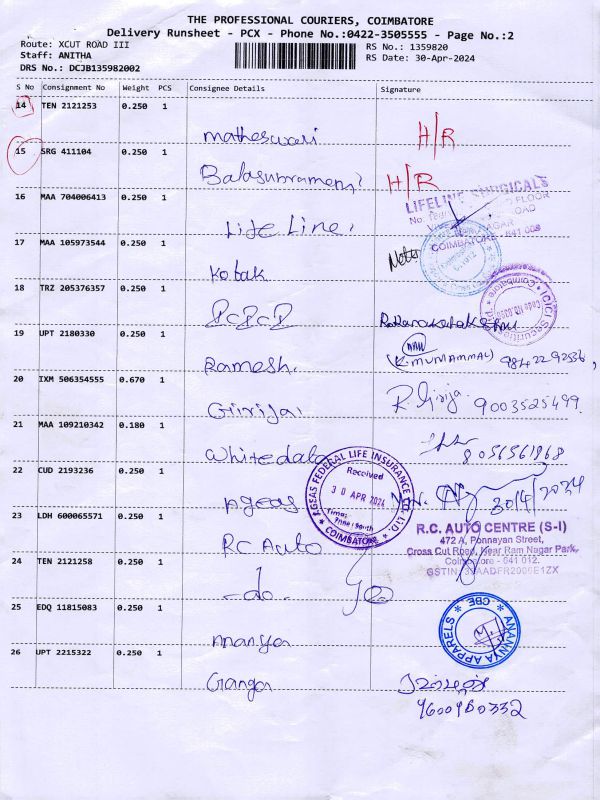 THE PROFESSIONAL COURIERS, COIMBATORE
Delivery Runsheet - PCX - Phone No.:0422-3505555 - Page No.:2
Route: XCUT ROAD III
RS No.: 1359820
Staff: ANITHA
RS Date: 30-Apr-2024
DRS No.: DCJB135982002
S No Consignment No Weight PCS Consignee Details Signature
14 TEN 2121253 0.250 1
Matheswari H/R
15 SRG 411104 0.250 1
Balasubramani H/R
16 MAA 704006413 0.250 1
LIFELINE SURGICALS
COIMBATORE - 641 009
Life Line
17 MAA 105973544 0.250 1
Kotak
18 TRZ 205376357 0.250 1
ICICI Securities
Coimbatore
19 UPT 2180330 0.250 1
Ramesh. (MUNIAMMAL) 9842292536,
20 IXM 506354555 0.670 1
Girija R. Girija 9003525499.
21 MAA 109210342 0.180 1
Whitedata 8056561868
22 CUD 2193236 0.250 1
AGEAS FEDERAL LIFE INSURANCE CO. LTD.
Received
30 APR 2024
Time:
COIMBATORE
Ageas 30/4/2024
23 LDH 600065571 0.250 1
RC Auto
R.C. AUTO CENTRE (S-I)
472 A, Ponnayan Street,
Cross Cut Road, Near Ram Nagar Park,
Coimbatore - 641 012.
24 TEN 2121258 0.250 1
-do-
25 EDQ 11815083 0.250 1
CBE
ANANNYA APPARELS
Mananya
26 UPT 2215322 0.250 1
Ganga
9600960332